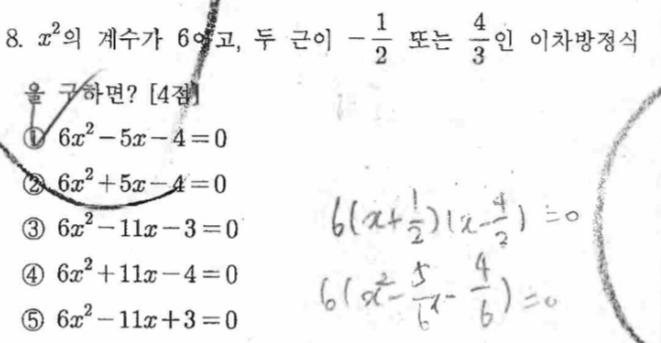 8. x²의 계수가 6이고, 두 근이 -1/2 또는 4/3인 이차방정식
을 구하면? [4점]
① 6x²-5x-4=0
② 6x²+5x-4=0
③ 6x²-11x-3=0
④ 6x²+11x-4=0
⑤ 6x²-11x+3=0
6(x+1/2)(x-4/3)=0
6(x²-5/6x-4/6)=0